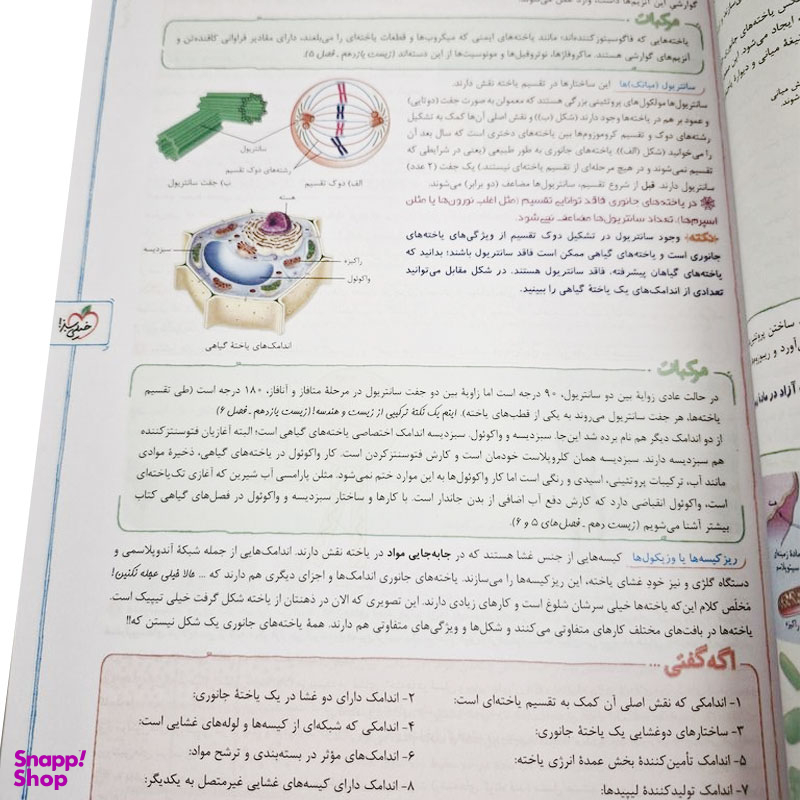 گوارشی این آنزیم‌ها است، وارد عمل می‌شوند.
مرکبات
یاخته‌هایی که فاگوسیتوزکننده‌اند؛ مانند یاخته‌های ایمنی که میکروب‌ها و قطعات یاخته‌ای را می‌بلعند، دارای مقادیر فراوانی کافنده‌تن و
آنزیم‌های گوارشی هستند. ماکروفاژها، نوتروفیل‌ها و مونوسیت‌ها از این دسته‌اند (زیست یازدهم ـ فصل ۵).
سانتریول (میانک)ها این ساختارها در تقسیم یاخته نقش دارند.
سانتریول‌ها مولکول‌های پروتئینی بزرگی هستند که معمولن به صورت جفت (دوتایی)
و عمود بر هم در یاخته‌ها وجود دارند (شکل (ب)) و نقش اصلی آن‌ها کمک به تشکیل
رشته‌های دوک و تقسیم کروموزوم‌ها بین یاخته‌های دختری است که سال بعد آن
را می‌خوانید (شکل (الف)). یاخته‌های جانوری به طور طبیعی (یعنی در شرایطی که
تقسیم نمی‌شوند و در هیچ مرحله‌ای از تقسیم یاخته‌ای نیستند.) یک جفت (۲ عدد)
سانتریول دارند. قبل از شروع تقسیم، سانتریول‌ها مضاعف (دو برابر) می‌شوند.
در یاخته‌های جانوری فاقد توانایی تقسیم (مثل اغلب نورون‌ها یا مثلن
اسپرم‌ها)، تعداد سانتریول‌ها مضاعف نمی‌شود.
نکته وجود سانتریول در تشکیل دوک تقسیم از ویژگی‌های یاخته‌های
جانوری است و یاخته‌های گیاهی ممکن است فاقد سانتریول باشند؛ بدانید که
یاخته‌های گیاهان پیشرفته، فاقد سانتریول هستند. در شکل مقابل می‌توانید
تعدادی از اندامک‌های یک یاختهٔ گیاهی را ببینید.
سانتریول
رشته‌های دوک تقسیم
الف) دوک تقسیم
ب) جفت سانتریول
هسته
سبزدیسه
راکیزه
واکوئول
اندامک‌های یاختهٔ گیاهی
خیلی سبز
مرکبات
در حالت عادی زوایهٔ بین دو سانتریول، ۹۰ درجه است اما زاویهٔ بین دو جفت سانتریول در مرحلهٔ متافاز و آنافاز، ۱۸۰ درجه است (طی تقسیم
یاخته‌ها، هر جفت سانتریول می‌روند به یکی از قطب‌های یاخته). اینم یک نکتهٔ ترکیبی از زیست و هندسه! (زیست یازدهم ـ فصل ۶)
از دو اندامک دیگر هم نام برده شد این‌جا. سبزدیسه و واکوئول. سبزدیسه اندامک اختصاصی یاخته‌های گیاهی است؛ البته آغازیان فتوسنتزکننده
هم سبزدیسه دارند. سبزدیسه همان کلروپلاست خودمان است و کارش فتوسنتزکردن است. کار واکوئول در یاخته‌های گیاهی، ذخیرهٔ موادی
مانند آب، ترکیبات پروتئینی، اسیدی و رنگی است اما کار واکوئول‌ها به این موارد ختم نمی‌شود. مثلن پارامسی آب شیرین که آغازی تک‌یاخته‌ای
است، واکوئول انقباضی دارد که کارش دفع آب اضافی از بدن جاندار است. با کارها و ساختار سبزدیسه و واکوئول در فصل‌های گیاهی کتاب
بیشتر آشنا می‌شویم (زیست دهم ـ فصل‌های ۵ و ۶).
ریزکیسه‌ها یا وزیکول‌ها کیسه‌هایی از جنس غشا هستند که در جابه‌جایی مواد در یاخته نقش دارند. اندامک‌هایی از جمله شبکهٔ آندوپلاسمی و
دستگاه گلژی و نیز خودِ غشای یاخته، این ریزکیسه‌ها را می‌سازند. یاخته‌های جانوری اندامک‌ها و اجزای دیگری هم دارند که ... حالا خیلی عجله نکنین!
مُخلَص کلام این‌که یاخته‌ها خیلی سرشان شلوغ است و کارهای زیادی دارند. این تصویری که الان در ذهنتان از یاخته شکل گرفت خیلی تیپیک است.
یاخته‌ها در بافت‌های مختلف کارهای متفاوتی می‌کنند و شکل‌ها و ویژگی‌های متفاوتی هم دارند. همهٔ یاخته‌های جانوری یک شکل نیستن که!!
اگه گفتی ...
۱- اندامکی که نقش اصلی آن کمک به تقسیم یاخته‌ای است:
۲- اندامک دارای دو غشا در یک یاختهٔ جانوری:
۳- ساختارهای دوغشایی یک یاختهٔ جانوری:
۴- اندامکی که شبکه‌ای از کیسه‌ها و لوله‌های غشایی است:
۵- اندامک تأمین‌کنندهٔ بخش عمدهٔ انرژی یاخته:
۶- اندامک‌های مؤثر در بسته‌بندی و ترشح مواد:
۷- اندامک تولیدکنندهٔ لیپیدها:
۸- اندامک دارای کیسه‌های غشایی غیرمتصل به یکدیگر:
Snapp!
Shop